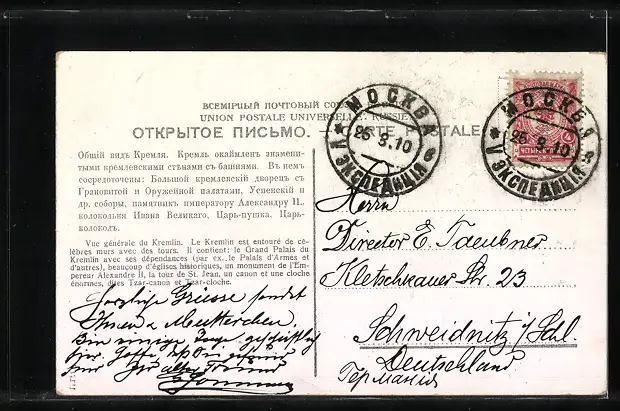 ВСЕМІРНЫЙ ПОЧТОВЫЙ
UNION POSTALE UNIVERSELLE. RUSSIE
ОТКРЫТОЕ ПИСЬМО. — CARTE POSTALE
МОСКВА
25.3.10
V ЭКСПЕДИЦІЯ
МОСКВА
25.3.10
V ЭКСПЕДИЦІЯ
Общій видъ Кремля. Кремль окаймленъ знамени-
тыми кремлевскими стѣнами съ башнями. Въ немъ
сосредоточены: Большой кремлевскій дворецъ съ
Грановитой и Оружейной палатами, Успенскій и
др. соборы, памятникъ императору Александру II.,
колокольня Ивана Великаго, Царь-пушка, Царь-
колоколъ.
Vue générale du Kremlin. Le Kremlin est entouré de cé-
lèbres murs avec des tours. Il contient: le Grand Palais du
Kremlin avec ses dépendances (par ex. le Palais d'Armes et
d'autres), beaucoup d'églises historiques, un monument de l'Em-
pereur Alexandre II, la tour de St. Jean, un canon et une cloche
énormes, dites Tzar-canon et Tzar-cloche.
Herzliche Grüsse sendet
Ihnen u Mutterchen
Bin einige Tage geschäftlich
hier
Herrn
Director E. Taeubner
Kletschkauer Str. 23
Schweidnitz i/Schl.
Deutschland
Германия